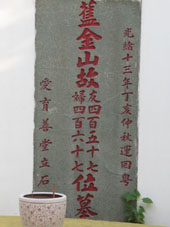 光緒十三年丁亥仲秋運回粵
舊金山故
友四百五十七
婦四百六十七
位墓
愛育善堂立石